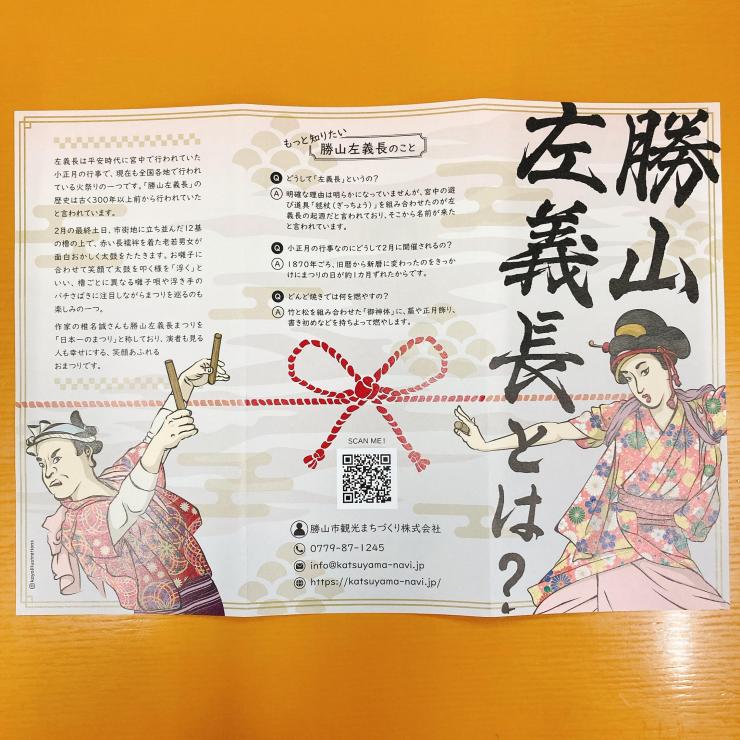 勝山
左義長とは？
左義長は平安時代に宮中で行われていた
小正月の行事で、現在も全国各地で行われ
ている火祭りの一つです。「勝山左義長」の
歴史は古く300年以上前から行われていた
と言われています。
2月の最終土日、市街地に立ち並んだ12基
の櫓の上で、赤い長襦袢を着た老若男女が
面白おかしく太鼓をたたきます。お囃子に
合わせて笑顔で太鼓を叩く様を「浮く」と
いい、櫓ごとに異なる囃子唄や浮き手の
バチさばきに注目しながらまつりを巡るのも
楽しみの一つ。
作家の椎名誠さんも勝山左義長まつりを
「日本一のまつり」と称しており、演者も見る
人も幸せにする、笑顔あふれる
おまつりです。
もっと知りたい
勝山左義長のこと
Q どうして「左義長」というの？
A 明確な理由は明らかになっていませんが、宮中の遊
び道具「毬杖（ぎっちょう）」を組み合わせたのが左
義長の起源だと言われており、そこから名前が来た
と言われています。
Q 小正月の行事なのにどうして2月に開催されるの？
A 1870年ごろ、旧暦から新暦に変わったのをきっか
けにまつりの日が約1カ月ずれたからです。
Q どんど焼きでは何を燃やすの？
A 竹と松を組み合わせた「御神体」に、藁や正月飾り、
書き初めなどを持ちよって燃やします。
SCAN ME!
勝山市観光まちづくり株式会社
0779-87-1245
info@katsuyama-navi.jp
https://katsuyama-navi.jp/
@kayoillustrations